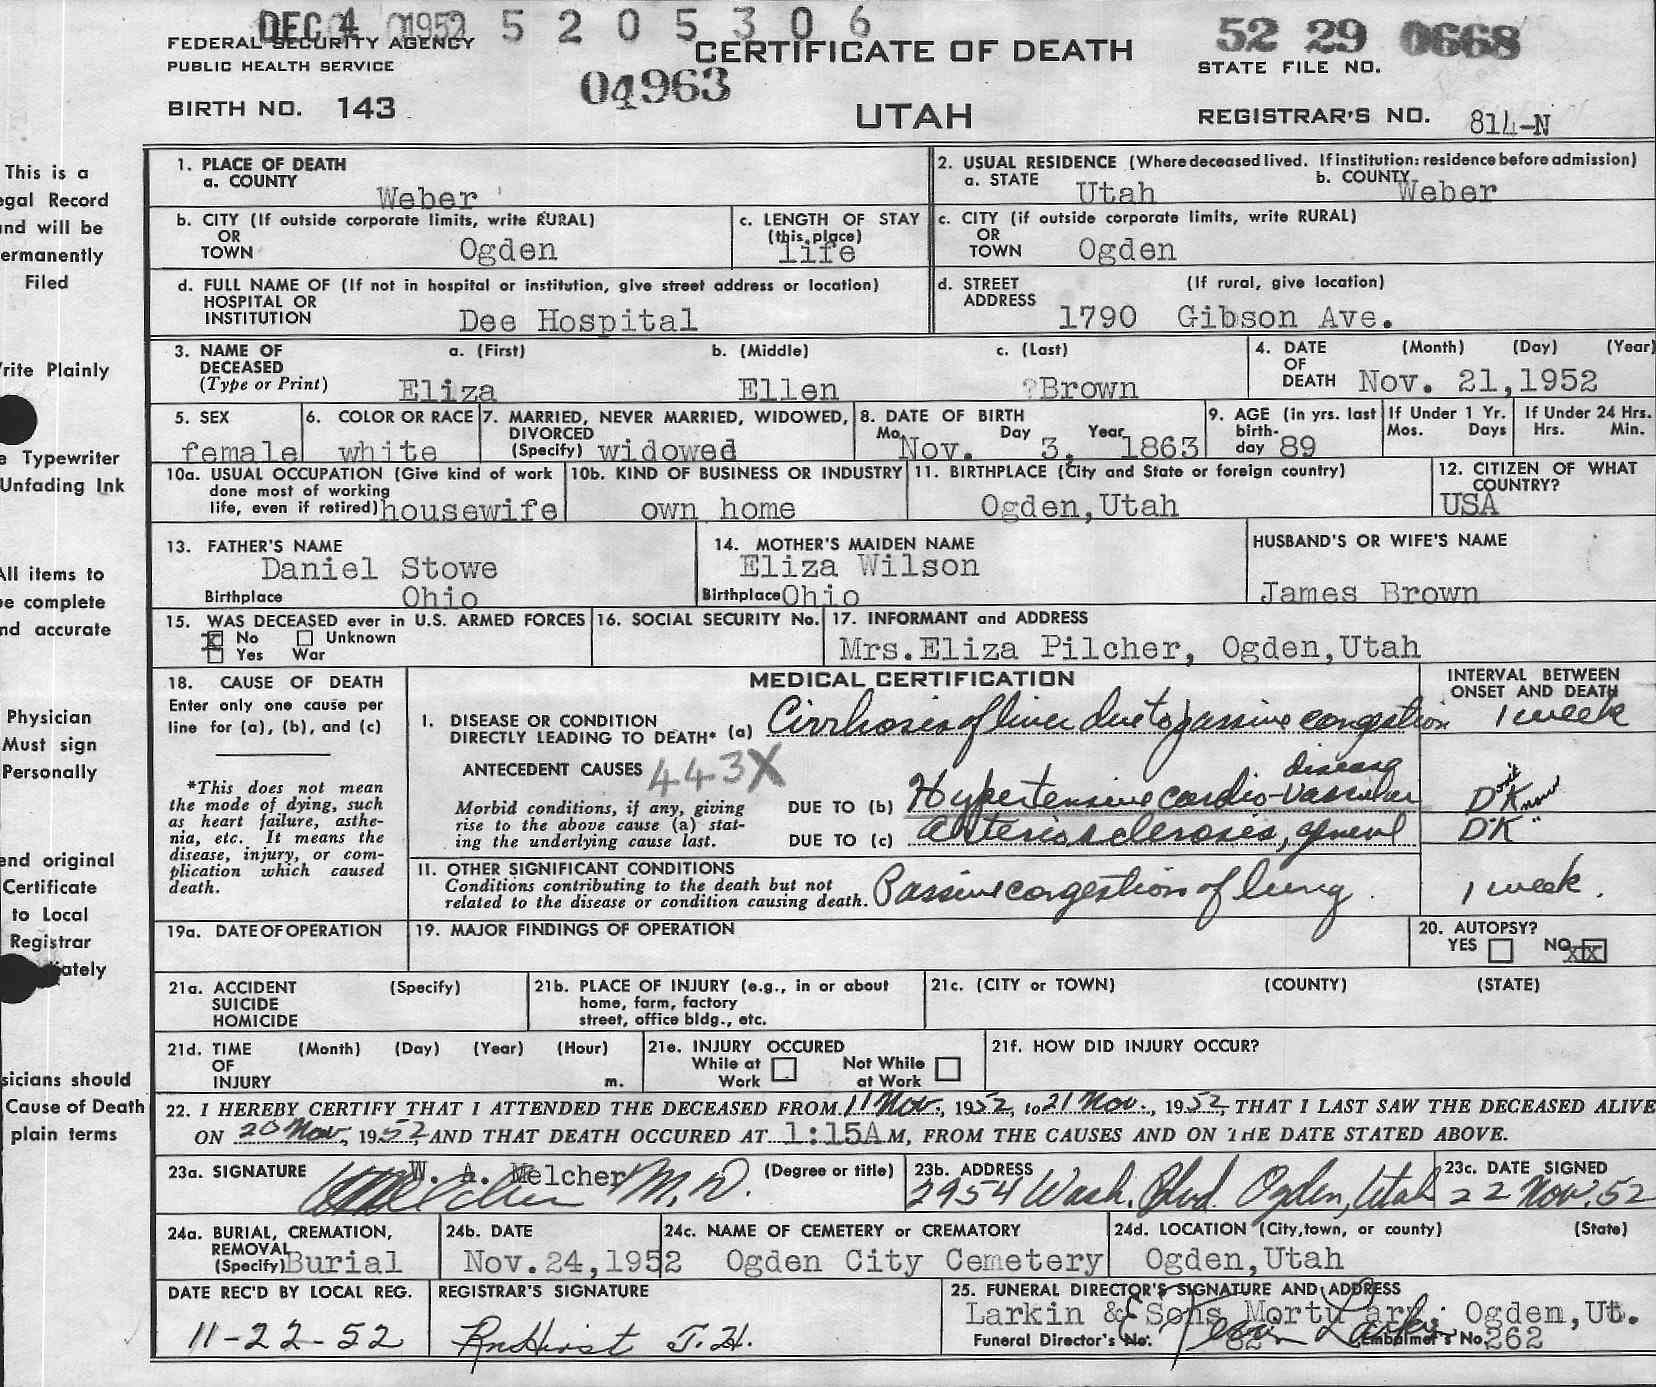 DEC 4 1952 5 2 0 5 3 0 6
FEDERAL SECURITY AGENCY
PUBLIC HEALTH SERVICE
CERTIFICATE OF DEATH
52 29 0668
STATE FILE NO.
04963
BIRTH NO. 143
UTAH
REGISTRAR'S NO. 814-N
This is a
egal Record
nd will be
ermanently
Filed
rite Plainly
e Typewriter
Unfading Ink
All items to
be complete
nd accurate
Physician
Must sign
Personally
end original
Certificate
to Local
Registrar
iately
sicians should
Cause of Death
plain terms
1. PLACE OF DEATH
a. COUNTY Weber
2. USUAL RESIDENCE (Where deceased lived. If institution: residence before admission)
a. STATE Utah b. COUNTY Weber
b. CITY (If outside corporate limits, write RURAL)
OR
TOWN Ogden
c. LENGTH OF STAY
(this place)
life
c. CITY (if outside corporate limits, write RURAL)
OR
TOWN Ogden
d. FULL NAME OF (If not in hospital or institution, give street address or location)
HOSPITAL OR
INSTITUTION Dee Hospital
d. STREET (If rural, give location)
ADDRESS 1790 Gibson Ave.
3. NAME OF a. (First) b. (Middle) c. (Last)
DECEASED
(Type or Print) Eliza Ellen ?Brown
4. DATE (Month) (Day) (Year)
OF
DEATH Nov. 21,1952
5. SEX
female
6. COLOR OR RACE
white
7. MARRIED, NEVER MARRIED, WIDOWED,
DIVORCED
(Specify) widowed
8. DATE OF BIRTH
Mo. Day Year
Nov. 3, 1863
9. AGE (in yrs. last
birth-
day 89
If Under 1 Yr.
Mos. Days
If Under 24 Hrs.
Hrs. Min.
10a. USUAL OCCUPATION (Give kind of work
done most of working
life, even if retired) housewife
10b. KIND OF BUSINESS OR INDUSTRY
own home
11. BIRTHPLACE (City and State or foreign country)
Ogden,Utah
12. CITIZEN OF WHAT
COUNTRY?
USA
13. FATHER'S NAME
Daniel Stowe
Birthplace Ohio
14. MOTHER'S MAIDEN NAME
Eliza Wilson
Birthplace Ohio
HUSBAND'S OR WIFE'S NAME
James Brown
15. WAS DECEASED ever in U.S. ARMED FORCES
X No Unknown
Yes War
16. SOCIAL SECURITY No.
17. INFORMANT and ADDRESS
Mrs.Eliza Pilcher, Ogden,Utah
18. CAUSE OF DEATH
Enter only one cause per
line for (a), (b), and (c)
*This does not mean
the mode of dying, such
as heart failure, asthe-
nia, etc. It means the
disease, injury, or com-
plication which caused
death.
MEDICAL CERTIFICATION
INTERVAL BETWEEN
ONSET AND DEATH
1. DISEASE OR CONDITION
DIRECTLY LEADING TO DEATH* (a) Cirrhosis of liver due to passive congestion 1 week
ANTECEDENT CAUSES 443X
Morbid conditions, if any, giving
rise to the above cause (a) stat-
ing the underlying cause last.
DUE TO (b) Hypertensive cardio-vascular disease Don't Know
DUE TO (c) arteriosclerosis, general D"K"
11. OTHER SIGNIFICANT CONDITIONS
Conditions contributing to the death but not
related to the disease or condition causing death. Passive congestion of lung. 1 week.
19a. DATE OF OPERATION
19. MAJOR FINDINGS OF OPERATION
20. AUTOPSY?
YES NO XX
21a. ACCIDENT (Specify)
SUICIDE
HOMICIDE
21b. PLACE OF INJURY (e.g., in or about
home, farm, factory
street, office bldg., etc.
21c. (CITY or TOWN) (COUNTY) (STATE)
21d. TIME (Month) (Day) (Year) (Hour)
OF
INJURY m.
21e. INJURY OCCURED
While at Not While
Work at Work
21f. HOW DID INJURY OCCUR?
22. I HEREBY CERTIFY THAT I ATTENDED THE DECEASED FROM 11 Nov., 1952, to 21 Nov., 1952, THAT I LAST SAW THE DECEASED ALIVE
ON 20 Nov, 1952 AND THAT DEATH OCCURED AT 1:15A M, FROM THE CAUSES AND ON THE DATE STATED ABOVE.
23a. SIGNATURE W. A. Melcher (Degree or title)
WA Melcher M.D.
23b. ADDRESS
2954 Wash. Blvd. Ogden, Utah
23c. DATE SIGNED
22 Nov. 52
24a. BURIAL, CREMATION,
REMOVAL
(Specify) Burial
24b. DATE
Nov.24,1952
24c. NAME OF CEMETERY or CREMATORY
Ogden City Cemetery
24d. LOCATION (City,town, or county) (State)
Ogden,Utah
DATE REC'D BY LOCAL REG.
11-22-52
REGISTRAR'S SIGNATURE
25. FUNERAL DIRECTOR'S SIGNATURE AND ADDRESS
Larkin & Sons Mortuary Ogden,Ut.
Funeral Director's No. 82 Embalmer's No. 262